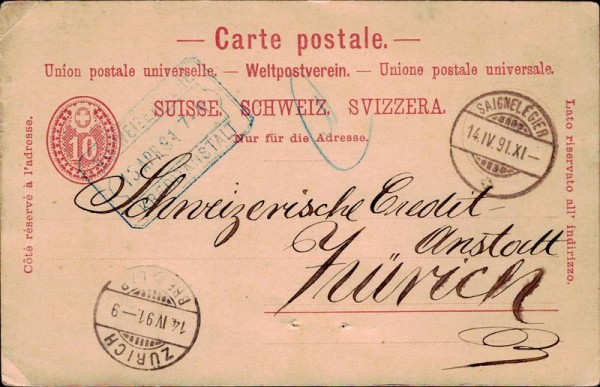 — Carte postale. —
Union postale universelle. — Weltpostverein. — Unione postale universale.
SUISSE. SCHWEIZ. SVIZZERA.
Nur für die Adresse.
10
Côté réservé à l'adresse.
Lato riservato all' indirizzo.
SAIGNELÉGIER
14.IV.91.XI—
15 APR 91
Schweizerische Credit
Anstalt
Zürich
14.IV.91—9
ZÜRICH